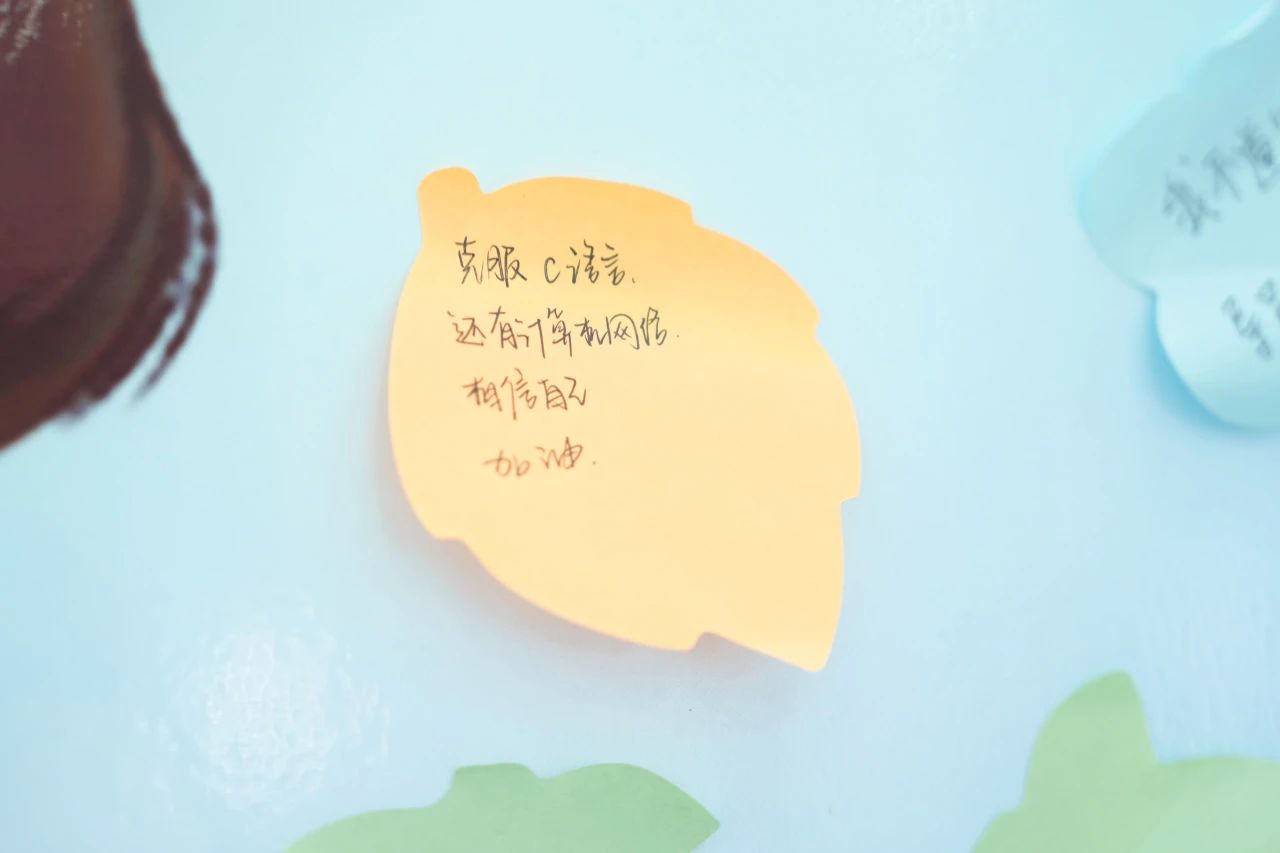 克服 C语言.
还有计算机网络.
相信自己
加油.
我不